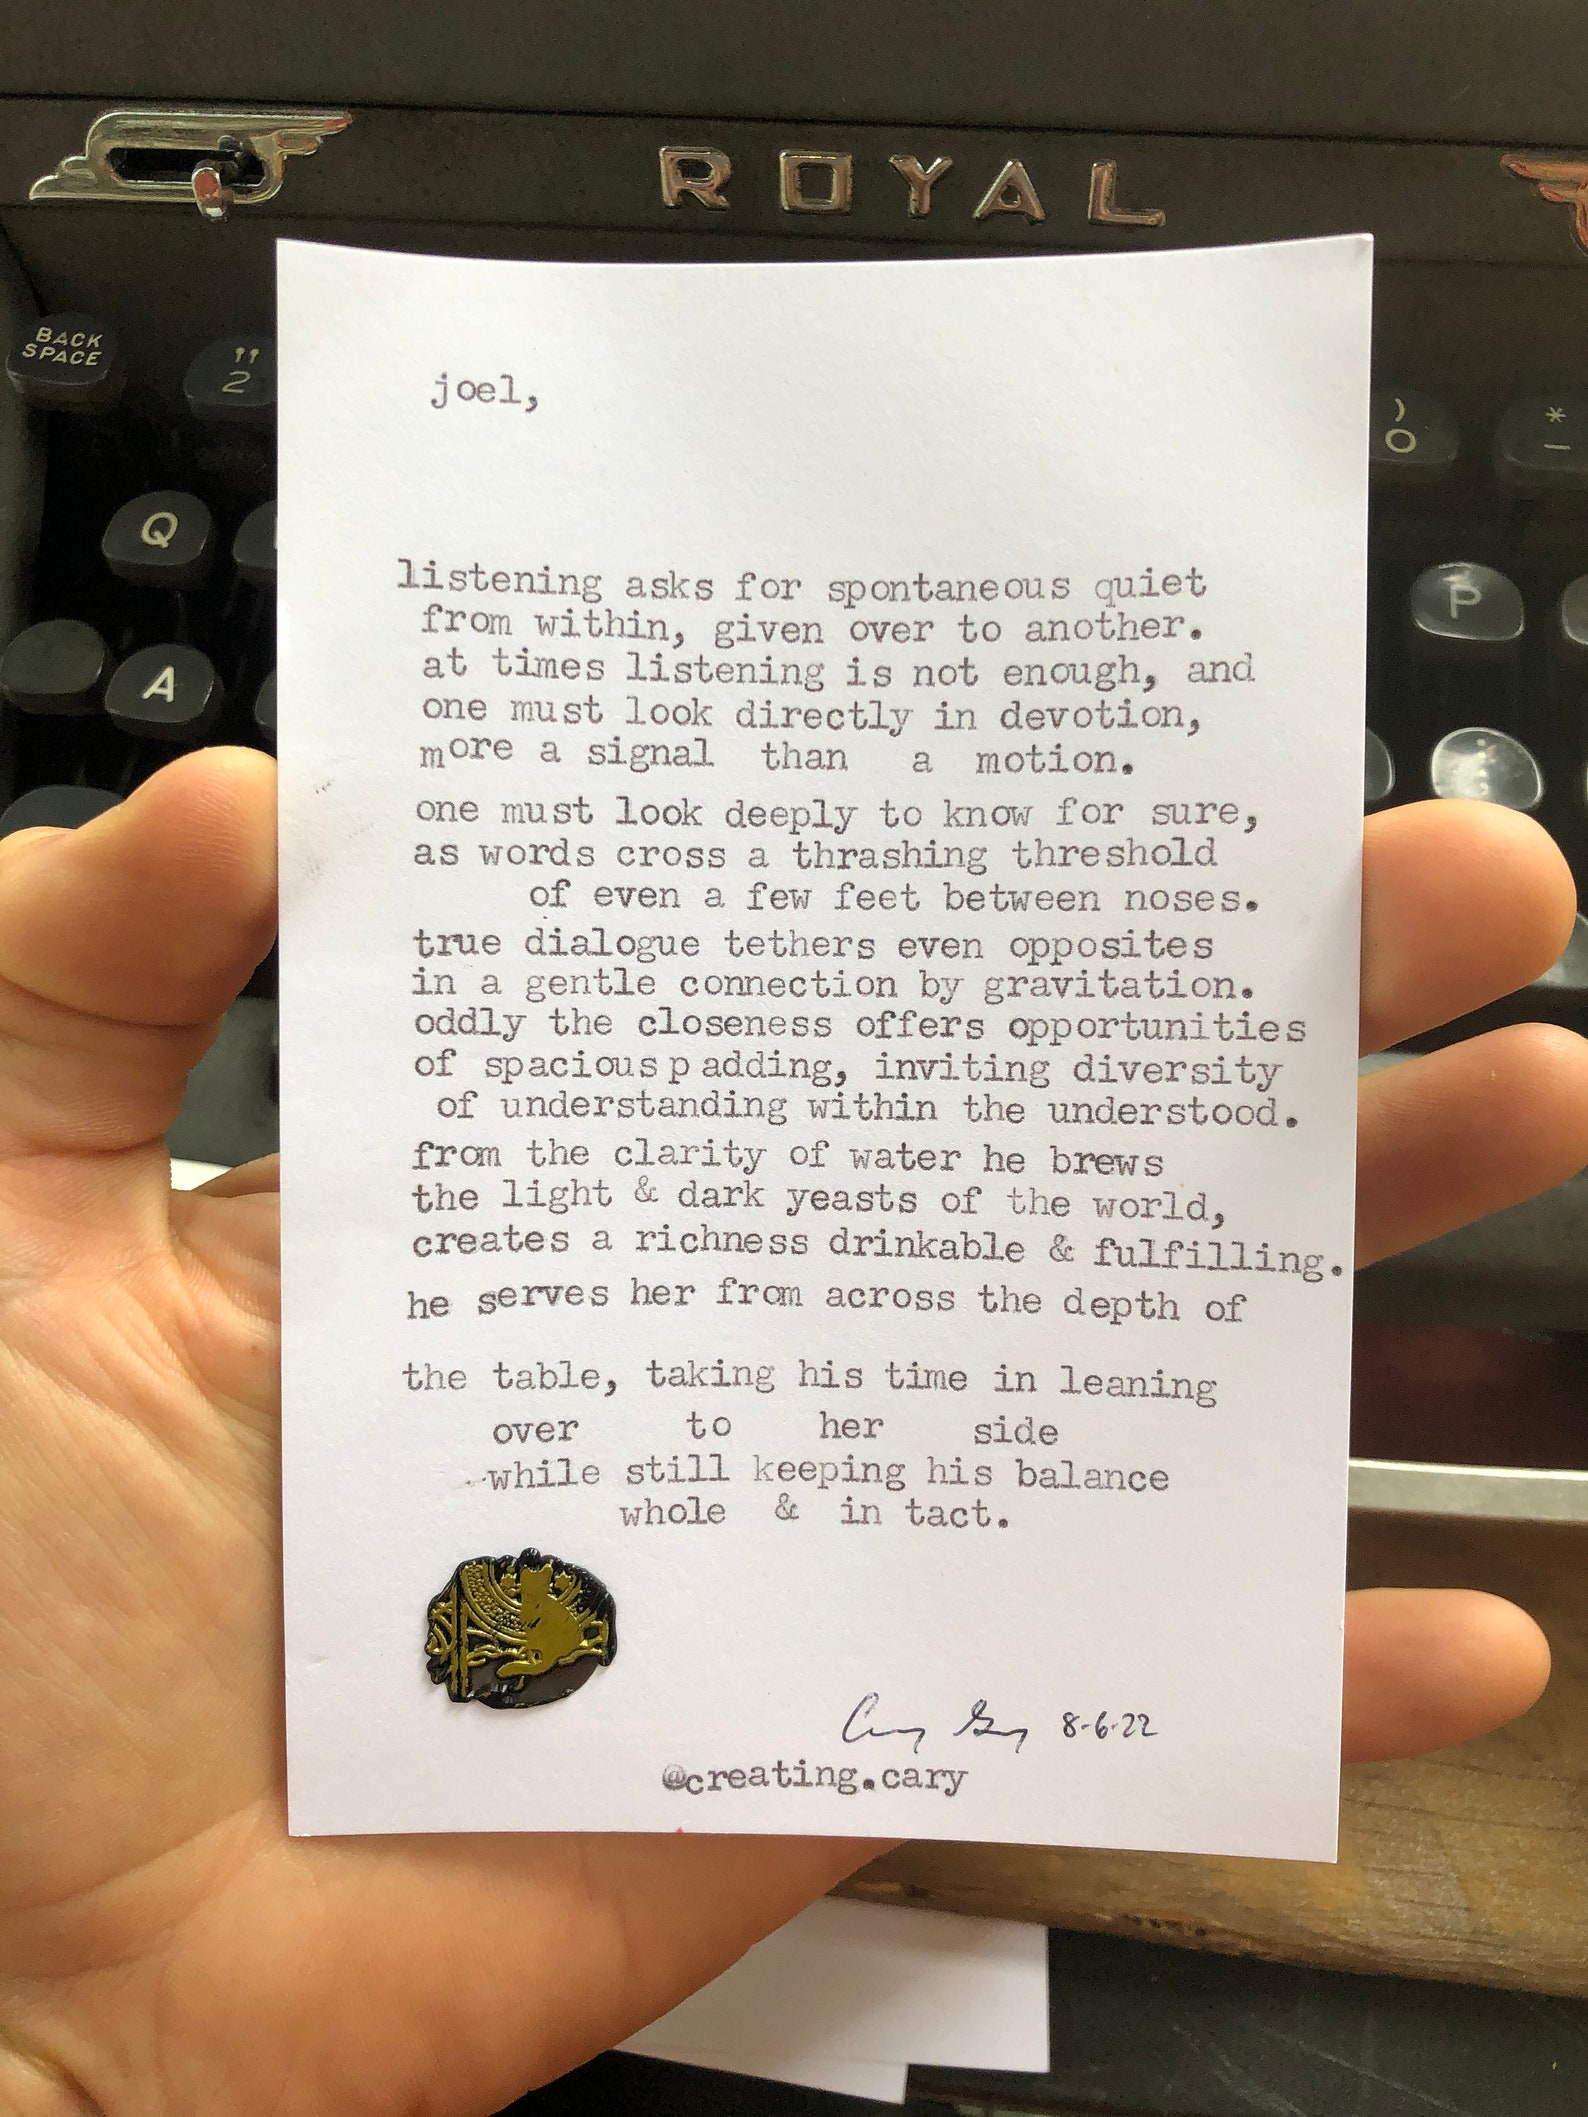 ROYAL
BACK
SPACE
"
2
)
0
*
-
Q
P
A
joel,
listening asks for spontaneous quiet
from within, given over to another.
at times listening is not enough, and
one must look directly in devotion,
more a signal than a motion.
one must look deeply to know for sure,
as words cross a thrashing threshold
of even a few feet between noses.
true dialogue tethers even opposites
in a gentle connection by gravitation.
oddly the closeness offers opportunities
of spacious p adding, inviting diversity
of understanding within the understood.
from the clarity of water he brews
the light & dark yeasts of the world,
creates a richness drinkable & fulfilling.
he serves her from across the depth of
the table, taking his time in leaning
over to her side
while still keeping his balance
whole & in tact.
8-6-22
@creating.cary